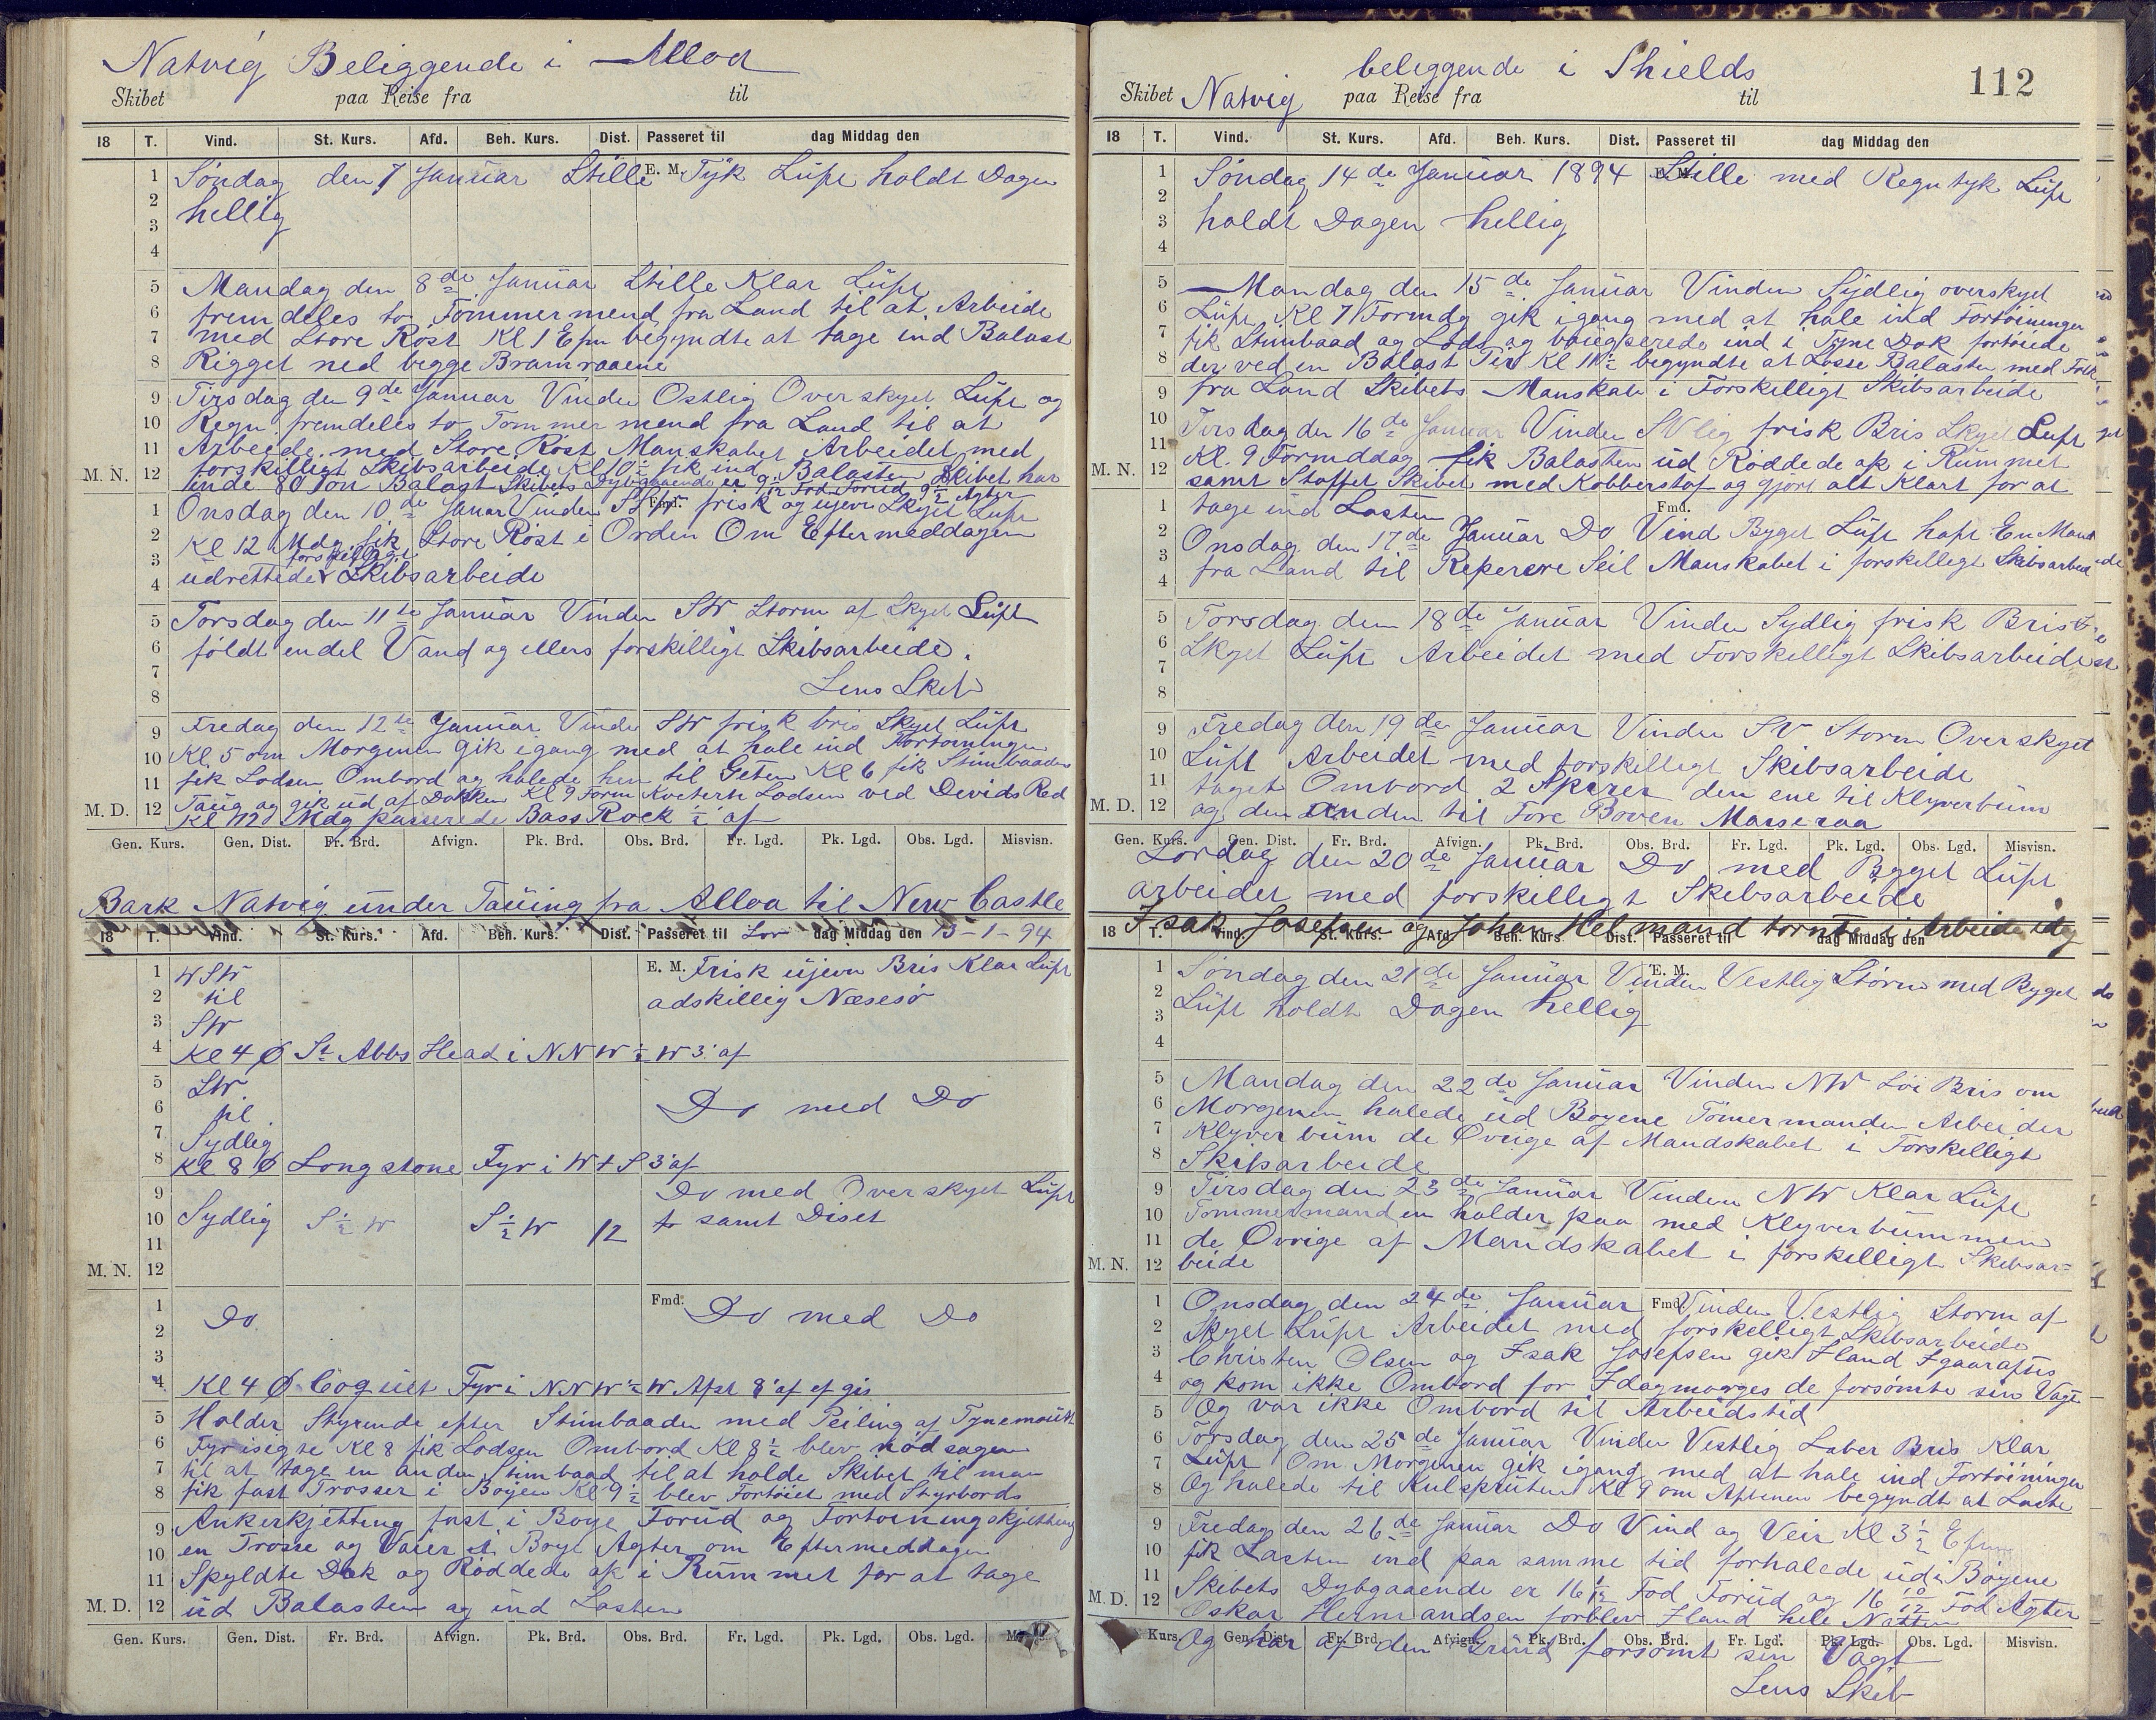 Natvig Beliggende i Alloa
Skibet paa Reise fra til
18 T. Vind. St. Kurs. Afd. Beh. Kurs. Dist. Passeret til dag Middag den
E. M.
Søndag den 7 Januar Stille Tÿk Lüft holdt Dagen
hellig
Mandag den 8de Januar Stille Klar Lüft
fremdeles to Tømmermend fra Land til at Arbeide
med Store Røst Kl 1 Efm begyndte at tage ind Balast
Rigget ned begge Bramraaene
Tirsdag den 9de Januar Vinden Ostlig Overskyet Lüft og
Regn fremdeles to Tømmermend fra Land til at
Arbeide med Store Røst Manskabet Arbeidet med
forskilligt Skibsarbeide Kl 10 fik ind Balasten Skibet har
M. N. inde 80 Ton Balast Skibets Dybgaaende er 9 Fod Forud 9 Agter
Fmd.
Onsdag den 10de Januar Vinden SSW frisk og ujevn Skyet Lüft
Kl 12 Mdg fik Store Røst i Orden Om Eftermeddagen
udrettedes forskilligt Skibsarbeide
Torsdag den 11te Januar Vinden SW Storm af Skyet Lüft
földt endel Vand og ellers forskilligt Skibsarbeide.
Lens Skib
Fredag den 12te Januar Vinden SW frisk bris Skyet Lüft
Kl. 5 om Morgenen gik igang med at hale ind Fortøiningen
fik Lodsen Ombord og halede hen til Geten Kl 6 fik Stimbaaden
Taug og gik ud af Dokken Kl 9 Form Kveterte Lodsen ved Devids Red
M. D. Kl 12 Mdg passerede Bass Rock ½' af
Gen. Kurs. Gen. Dist. Fr. Brd. Afvign. Pk. Brd. Obs. Brd. Fr. Lgd. Pk. Lgd. Obs. Lgd. Misvisn.
Bark Natvig ünder Tauing fra Alloa til New Castle
18 T. Vind. St. Kurs. Afd. Beh. Kurs. Dist. Passeret til Lør dag Middag den 13-1-94
WSW E. M. Frisk üjevn Bris Klar Lüft
til adskillig Næsesø
SW
Kl 4 Ø St Abbs Head i NNW ½ W 3' af
SW
til Do med Do
Sydlig
Kl 8 Ø Longstone Fyr i W t S 3' af
Do med Overskyet Lüft
Sydlig S ½ W S ½ W 12 samt Diset
M. N.
Fmd.
Do Do med Do
Kl 4 Ø Coquet Fyr i NNW ½ W Afst 8' af ef gis
Holder Styrende efter Stimbaaden med Peiling af Tynemouth
Fyr isigte Kl 8 fik Lodsen Ombord Kl 8½ blev nödsagen
til at tage en anden Stimbaad til at holde Skibet til man
fik fast Trosser i Bøyen Kl 9½ blev Fortøiet med Styrbords
Ankerkjetting fast i Boye Forud og Fortoiningskjetting
en Trosse og Vaier i Boye Agter om Eftermeddagen
Spyldte Dæk og Röddede op i Rümmet for at tage
M. D. ud Balasten og ind Lasten
Gen. Kurs. Gen. Dist. Fr. Brd. Afvign. Pk. Brd. Obs. Brd. Fr. Lgd. Pk. Lgd. Obs. Lgd.
112
beliggende i Shields
Skibet Natvig paa Reise fra til
18 T. Vind. St. Kurs. Afd. Beh. Kurs. Dist. Passeret til dag Middag den
E. M.
Søndag 14de Januar 1894 Stille med Regntyk Lüft
holdt Dagen hellig
Mandag den 15de Januar Vinden Sydlig overskyet
Lüft Kl 7 Formdg gik igang med at hale ind Fortøiningen
fik Stimbaad og Lods og bougserede ind i Tyne Dok fortøiede
der ved en Balast Tir Kl 11½ begyndte at Losse Balasten med Folk
fra Land Skibets Manskab i Forskilligt Skibsarbeide
Tirsdag den 16de Januar Vinden SVlig frisk Bris Skyet Luft
Kl. 9 Formddag fik Balasten üd Röddede op i Rümmet
M. N. samt Stoffet Skibet med Kobberstof og gjort alt Klart for at
tage ind Lasten
Fmd.
Onsdag den 17de Januar Do Vind Byget Lüft haft En Mand
fra Land til Reperere Seil Manskabet i forskelligt Skibsarbeid
Torsdag den 18de Januar Vinden Sydlig frisk Bris
Skyet Lüft Arbeidet med Forskelligt Skibsarbeide
Fredag den 19de Januar Vinden SV Storm Overskyet
Lüft Arbeidet med forskilligt Skibsarbeide
taget Ombord 2 Spirer den ene til Klyverbüm
M. D. og den anden til Fore Boven Marseraa
Gen. Kurs. Gen. Dist. Fr. Brd. Afvign. Pk. Brd. Obs. Brd. Fr. Lgd. Pk. Lgd. Obs. Lgd. Misvisn.
Lordag den 20de Januar Do med Bÿget Lüft
arbeidet med forskelligt Skibsarbeide
Isak Josefsen og Johan Helmand tørnte i Arbeide idag
18 T. Vind. St. Kurs. Afd. Beh. Kurs. Dist. Passeret til dag Middag den
E. M.
Søndag den 21de Januar Vinden Vestlig Storm med Byget
Lüft holdt Dagen hellig
Mandag den 22de Januar Vinden NW Löi Bris om
Morgenen halede üd Boyene Tømermanden Arbeider
Klyverbüm de Øvrige af Mandskabet i Forskilligt
Skibsarbeide
Tirsdag den 23de Januar Vinden NW Klar Lüft
Tommermanden holder paa med Klyverbümmen
de Øvrige af Mandskabet i forskelligt Skibsar=
M. N. beide
Fmd.
Onsdag den 24de Januar Vinden Vestlig Storm af
Skyet Lüft Arbeidet med forskelligt Skibsarbeide
Christen Olsen og Isak Josefsen gik Iland Igaaraftes
og kom ikke Ombord for Idagmorges de forsömte sin Vagt
Og var ikke Ombord til Arbeidstid
Torsdag den 25de Januar Vinden Vestlig Laber Bris Klar
Lüft Om Morgenen gik igang med at hale ind Fortöiningen
Og halede til Kulsprüten Kl 9 om Aftenen begyndt at Laste
Fredag den 26de Januar Do Vind og Veir Kl 3½ Efm
fik Lasten ind paa samme tid forhalede üd i Bøyene
Skibets Dybgaaende er 16 1/12 Fod Forüd og 16 10/12 Fod Agter
M. D. Oskar Hermandsen forblev Iland hele Natten
Kurs. Gen. Dist. Fr. Brd. Afvign. Pk. Brd. Obs. Brd. Fr. Lgd. Pk. Lgd. Obs. Lgd. Misvisn.
Og har af den Gründ forsömt sin Vagt
Lens Skib